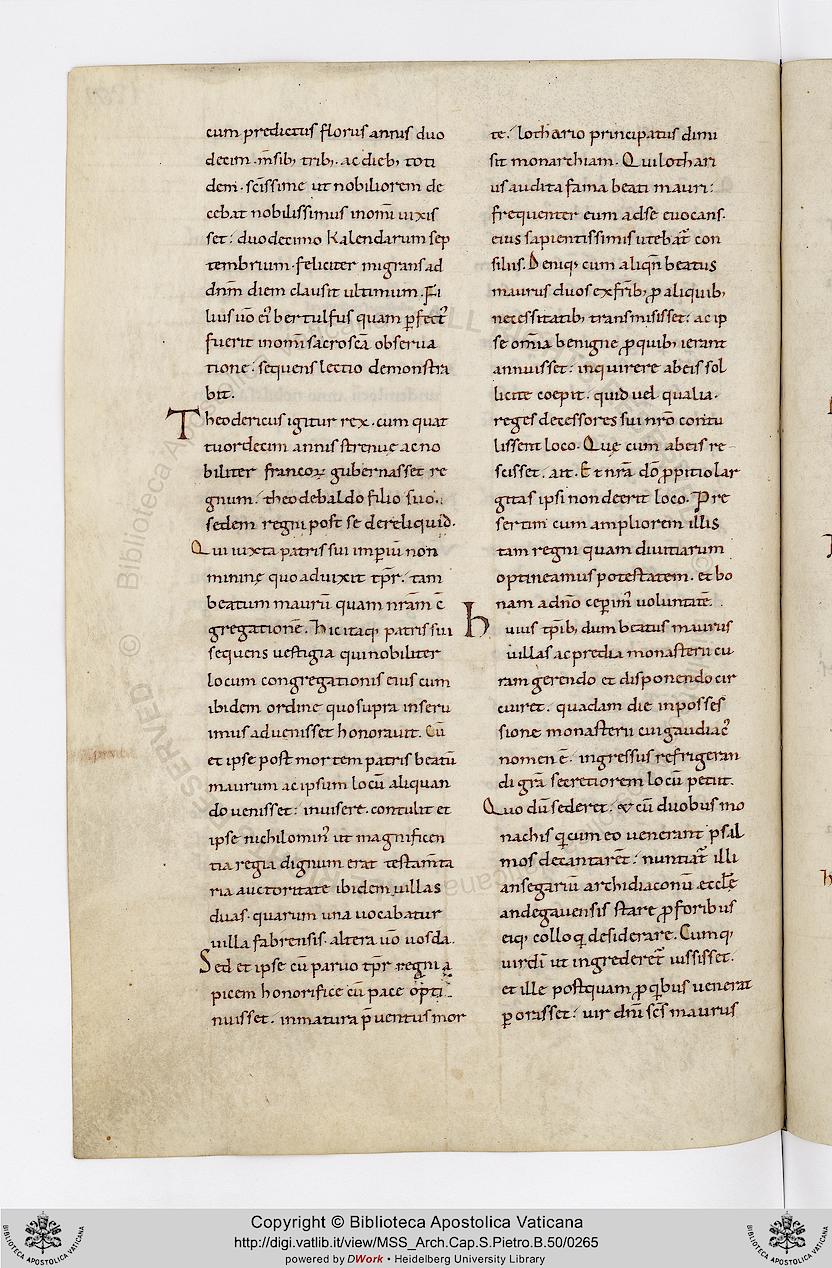 cum predictus florus annis duo
decim. m̄sib; trib;. ac dieb; toti
dem. sc̄issime ut nobiliorem de
cebat nobilissimus inom̄i uixis
set: duodecimo kalendarum sep
tembrium. feliciter migrans ad
dn̄m diem clausit ultimum. Fi
lius uō ei' bertulfus quam ꝑfect'
fuerit inom̄i sacrosc̄a obserua
tione: sequens lectio demonstra
bit.
Theodericus igitur rex. cum quat
tuordecim annis strenue ac no
biliter francoꝝ gubernasset re
gnum: theodebaldo filio suo.
sedem regni post se dereliquid.
Qui iuxta patris sui imperiū non
minimę quo aduixit tp̄r. tam
beatum maurū quam nr̄am c̄
gregationē. Hic itaq; patris sui
sequens uestigia qui nobiliter
locum congregationis eius cum
ibidem ordine quo supra inseru
imus aduenisset honorauit. Cū
et ipse post mortem patris beatū
maurum ac ipsum locū aliquan
do uenisset: inuisere. contulit et
ipse nichilomin' ut magnificen
tia regia dignum erat testam̄ta
ria auctoritate ibidem uillas
duas. quarum una uocabatur
uilla fabrensis. altera uō uosda.
Sed et ipse cū paruo tp̄r regni a
picem honorifice cū pace opti
nuisset. inmatura p̄uentus mor
te: lothario principatus dimi
sit monarchiam. Qui lothari
us audita fama beati mauri:
frequenter eum ad se euocans.
eius sapientissimis utebat̄ con
siliis. Deniq; cum aliqn̄ beatus
maurus duos ex fr̄ib; ꝓ aliquib;
necessitatib; transmisisset: ac ip
se om̄ia benigne ꝓ quib; ierant
annuisset: inquirere ab eis sol
licite coepit: quid uel qualia.
reges decessores sui nr̄o contu
lissent loco. Quę cum ab eis re
scisset. ait. Et nr̄a dō ꝓpitio lar
gitas ipsi non deerit loco. Pre
sertim cum ampliorem illis
tam regni quam diuitiarum
optineamus potestatem. et bo
nam a dn̄o cepim' uoluntatē.
Huius tp̄ib; dum beatus maurus
uillas ac predia monasterii cu
ram gerendo et disponendo cir
cuiret. quadam die in posses
sione monasterii cui gaudiac'
nomen ē. ingressus refrigeran
di gr̄a secretiorem locū petiit.
Quo dū sederet. & cū duobus mo
nachis q̇ cum eo uenerant psal
mos decantaret̄: nuntiat̄ illi
ansegariū archidiaconū eccl̄ę
andegauensis stare ꝓ foribus
eiq; colloq̇ desiderare. Cumq;
uir dī ut ingrederet̄ iussisset.
et ille postquam ꝓ q̇bus uenerat
ꝑorasset: uir dn̄i sc̄s maurus
Copyright © Biblioteca Apostolica Vaticana
http://digi.vatlib.it/view/MSS_Arch.Cap.S.Pietro.B.50/0265
powered by DWork • Heidelberg University Library